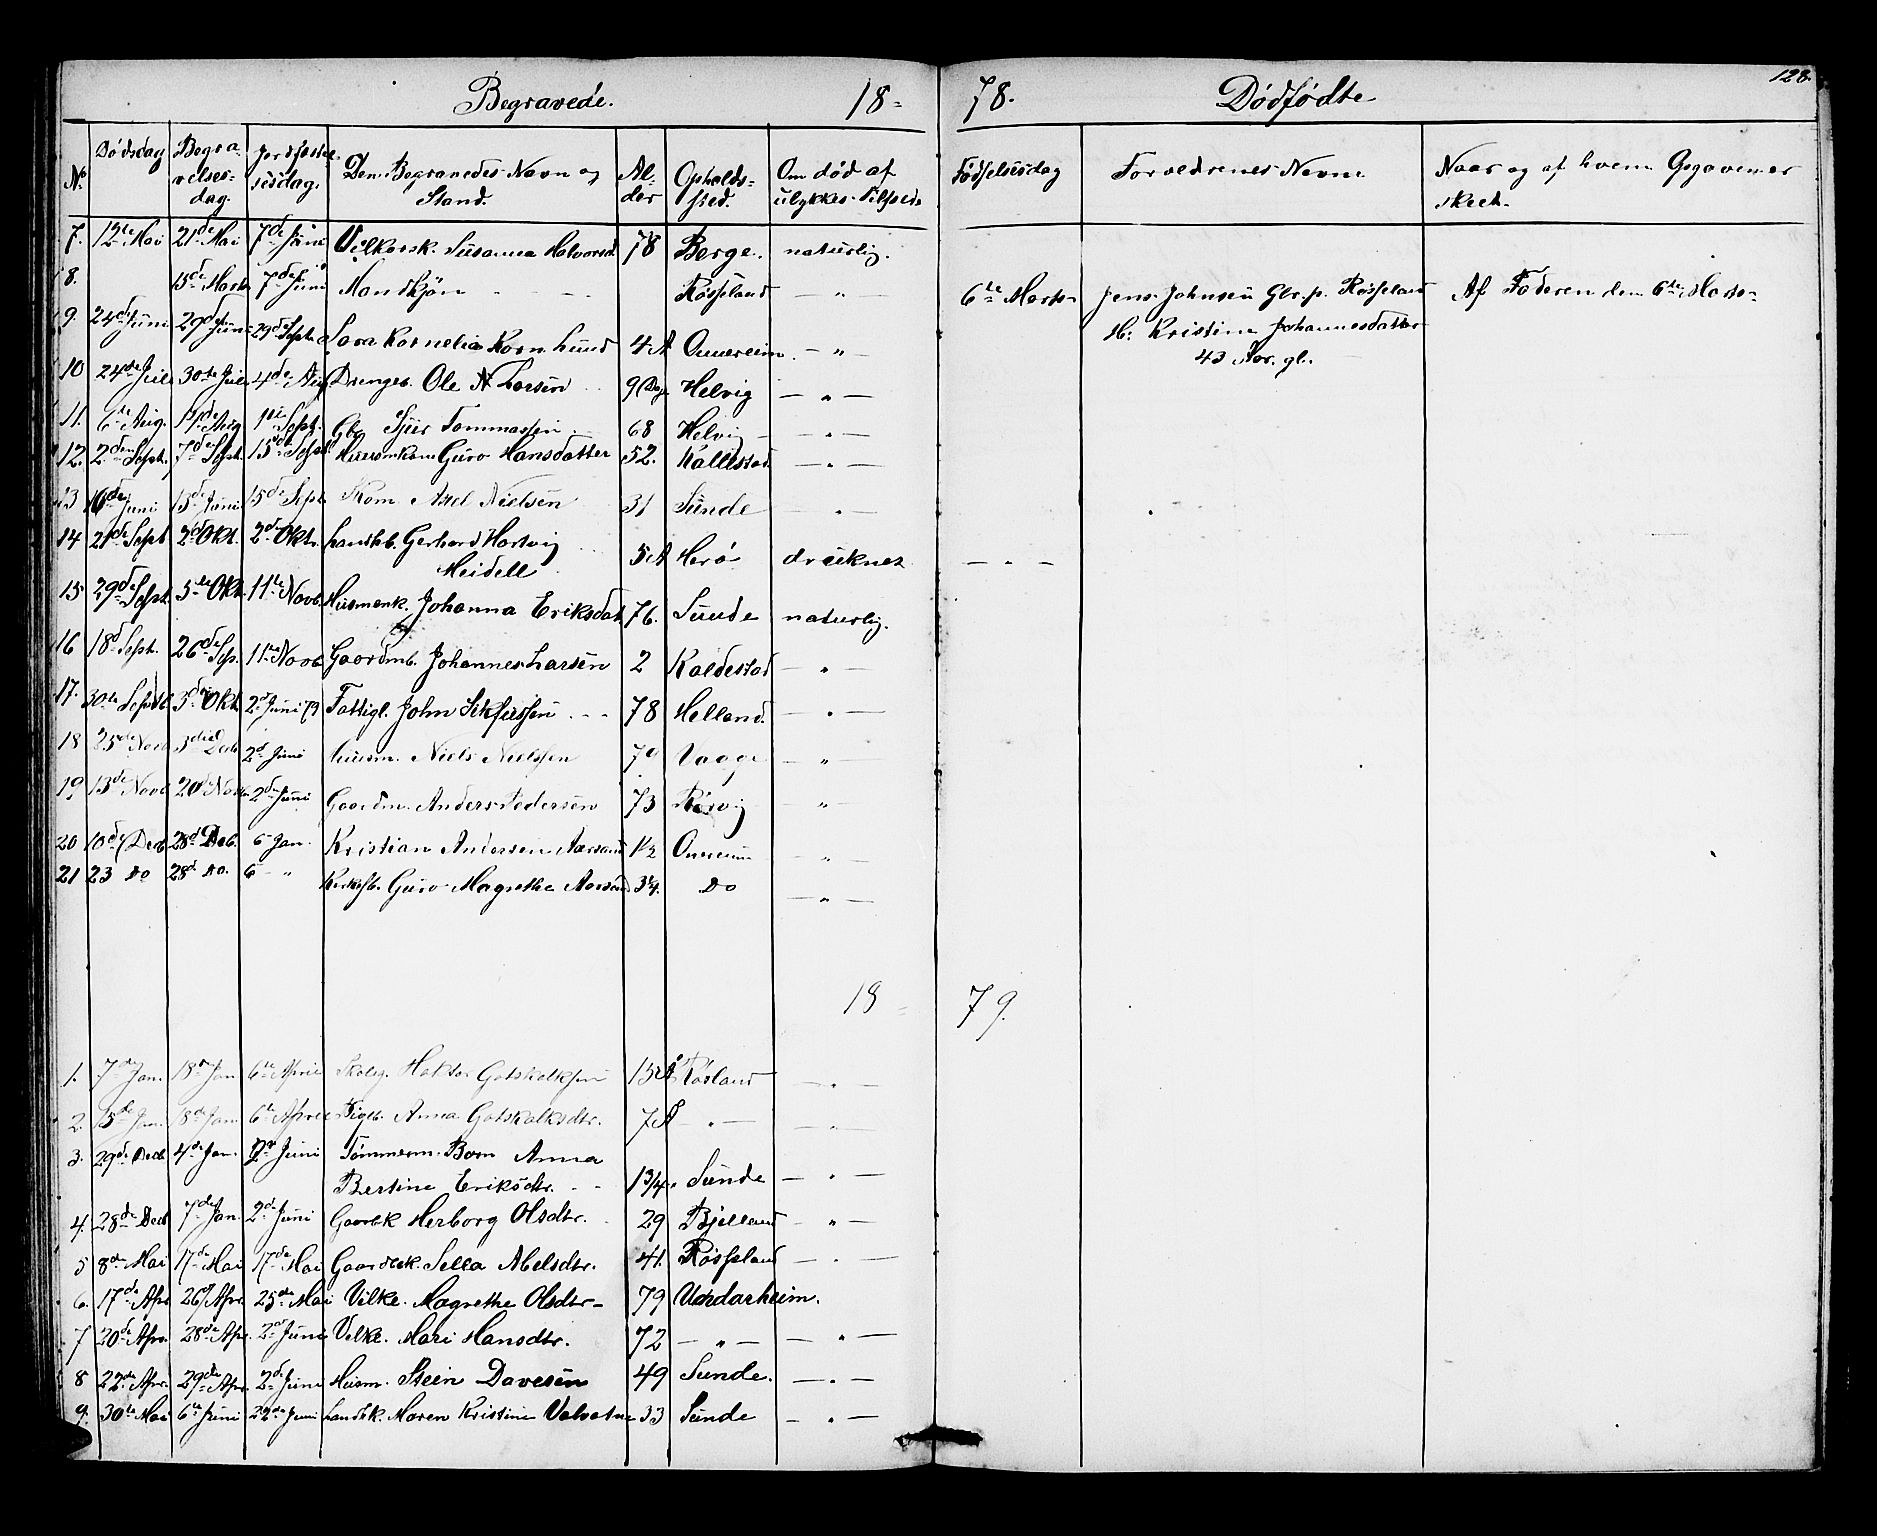 Begravede. 18-78. Dödfödte 128.
No. Dödsdag Begravelsesdag. Jordfæstelsesdag. Den Begravedes Navn og Stand. Alder Opholdssted. Om död af ulykkes-Tilfælde Födselsdag Forældrenes Navne Naar og af hvem Opgaven er skeet.
7. 12te Mai 21de Mai 7de Juni Vilkorsk. Susanna Halvorsd. 78 Berge. naturlig.
8. 15de Marts 7de Juni Mandkjön - - - Rösseland — " — 6te Marts Jens Johnsen Gbr.p. Rösseland Af Faderen den 6te Marts
H: Kristine Johannesdatter
43 Aar. gl.
9. 24de Juni 29de Juni 29de Sept. Sara Kornelia Kornelund 4 A Omereim — " —
10 24de Juli 30te Juli 4de Aug Drengeb. Ole N Larsen 9 Dag Helvig — " —
11. 6te Aug. 14de Aug 1ste Sept. Gbr Sjur Tommassen 68 Helvig — " —
12. 2den Sept. 7de Sept. 15de Sept Huusmkone Guro Hansdatter 52. Kallestad — " —
13 10de Juni 15de Juni 15de Sept Skom Axel Nielsen 31 Sunde "—
14 21de Sept 2d Okt. 2d Okt. Landhb. Gerhard Hartvig
Meidell 5 A Herö druknet — " —
15 29de Sept 5te Okt. 11te Novb. Husmenk. Johanna Eriksdat. 76. Sunde naturlig.
16 18d Sept. 26de Sep. 11te Novb. Gaardmb. Johannes Larsen 2 Kaldestad — " —
17. 30te Septb 3die Okt 2d Juni 79 Fattigl. John Sekfussen - - 78 Helland. — " —
18 25de Novb 3die Decb 2d Juni Huusm. Niels Nielssen 70 Vaage — " —
19 13de Novb 20de Novb 2de Juni Gaardm. Anders Pedersen 73 Rörvig "—
20 10de Decb 28d Deb. 6 Jan. Kristian Andersen Aarsand 1/2 Omereim — " —
21 23 Do 28d Do. 6 - " Kirkesb. Guro Magrethe Aarsand 3/4. Do — " —
18-79.
1. 7de Jan. 18de Jan 6te April Skoleg. Haktor Gotskalksen 13 A Rösland — " —
2. 15de Jan. 18de Jan. 6te April Pigeb. Anna Gotskalksdtr. 7 A — " — — " —
3. 29de Decb 4de Jan. 2d Juni Tömmerm. Barn Anna
Bertine Eriksdtr. - - 1 3/4. Sunde — " —
4. 28de Decb 7de Jan. 2de Juni Gaardbk Herborg Olsdtr. 29 Bjelland — " —
5 8de Mai 17de Mai 17de Mai Gaardbk. Sella Abelsdtr. 41. Rösseland — " —
6. 17de Apr. 26d Apr. 25de Mai Vilke. Magrethe Olsdtr- 79 Undarheim.
7 20de Apr. 28de Apr. 2de Juni Vilke. Mari Hansdtr. 72 — " — — " —
8 22de Apr. 29de Apr. 2de Juni Husm. Stein Davesen 49 Sunde. — " —
9. 30te Mai 6te Juni 22de Juni Landhk. Maren Kristine Valvatne 33 Sunde — " —